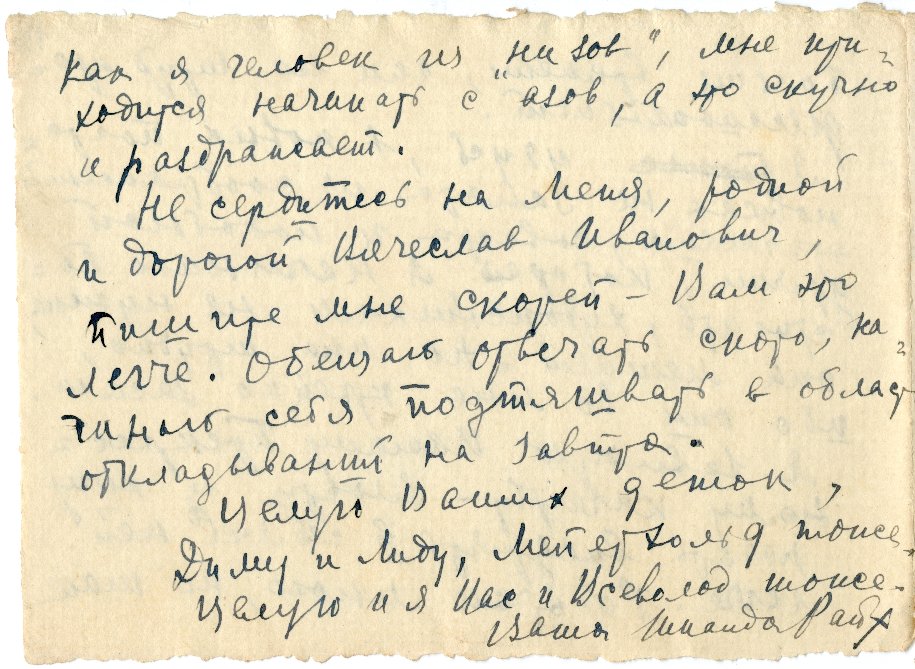 Как я человек из „низов", мне при-
ходится начинать с „азов, а это скучно
и раздражает.
Не сердитесь на меня, родной
и дорогой Вячеслав Иванович,
пишите мне скорей – Вам это
легче. Обещаю отвечать скоро, на-
чинаю себя подтягивать в област
откладываний на завтра.
Целую Ваших деток,
Диму и Лиду, Мейерхольд тоже.
Целую и я Вас и Всеволод тоже.
Ваша Зинаида Райх